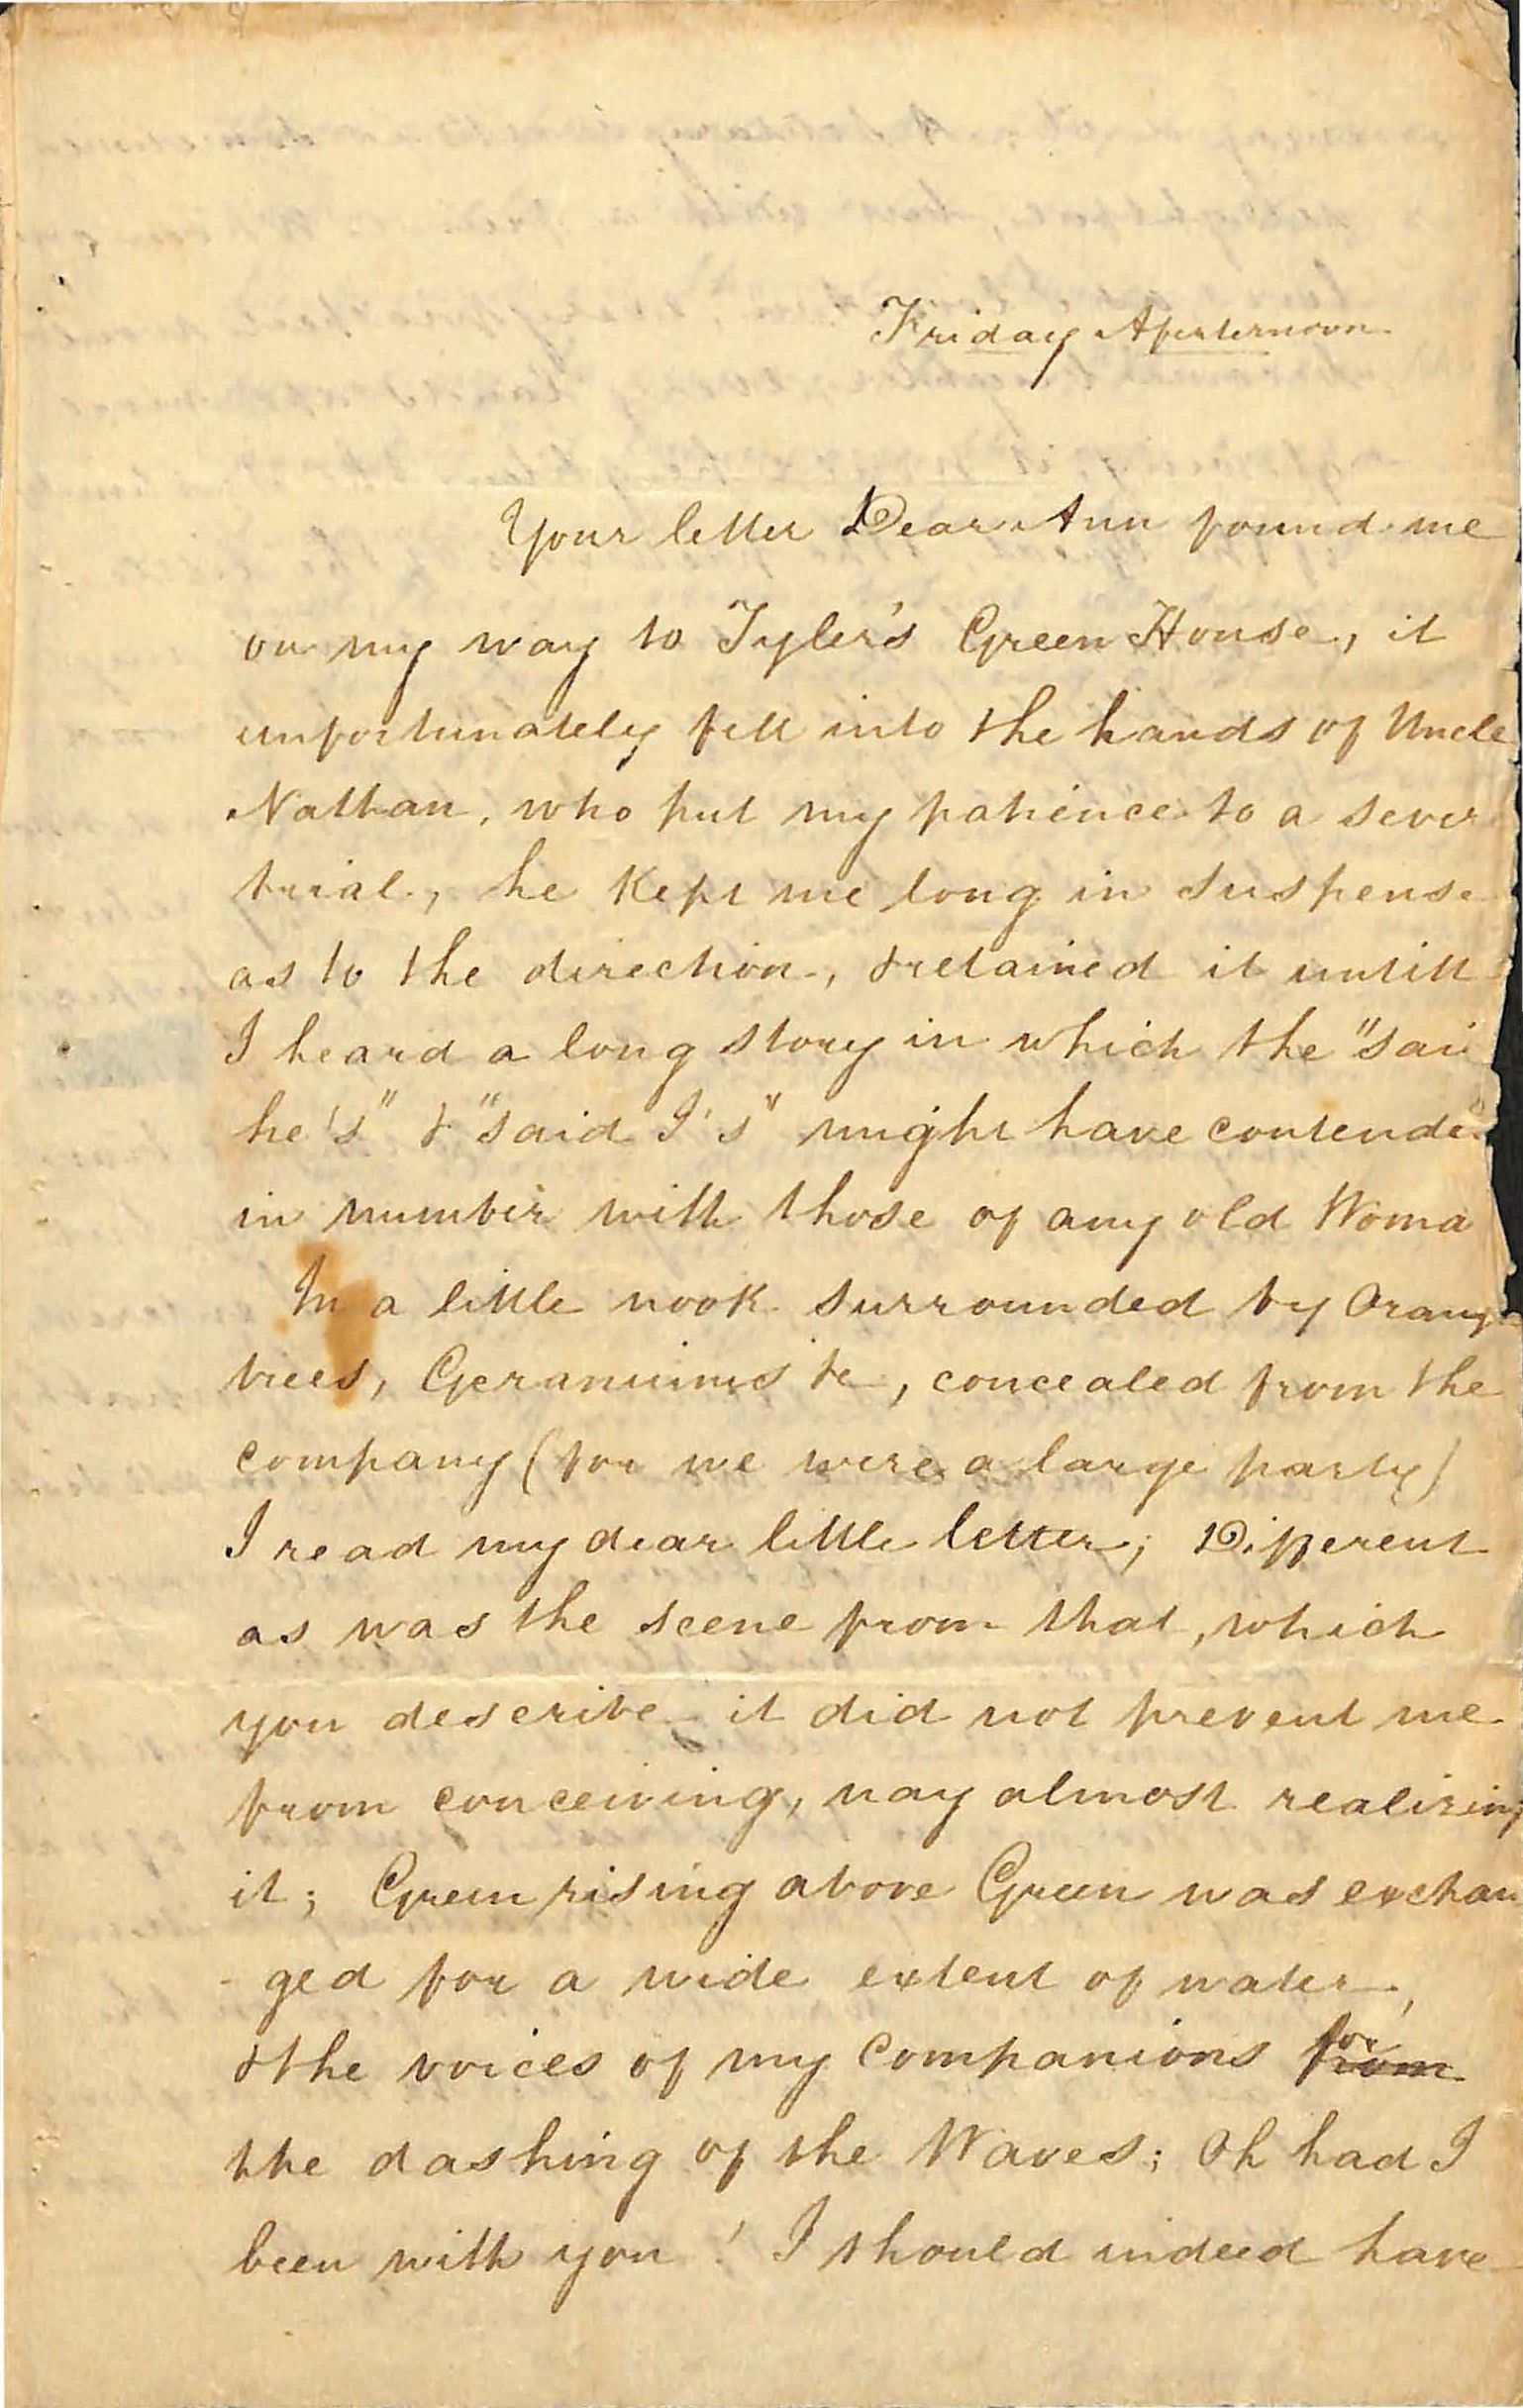 Friday Afternoon
Your letter Dear Ann found me
on my way to Tyler's Green House, it
unfortunately fell into the hands of Uncle
Nathan, who put my patience to a sever
trial, he Kept me long in suspense
as to the direction, & retained it untill
I heard a long story in which the "sai
he's" & "said I's" might have contende
in number with those of any old Woma
In a little nook surrounded by Orang
trees, Geraniums &c, concealed from the
company (for we were a large party)
I read my dear little letter; Different
as was the scene from that, which
you describe it did not prevent me
from conceiving, nay almost realising
it; Green rising above Green was exchan
-ged for a wide extent of water,
& the voices of my companions from for
the dashing of the Waves; Oh had I
been with you! I should indeed have